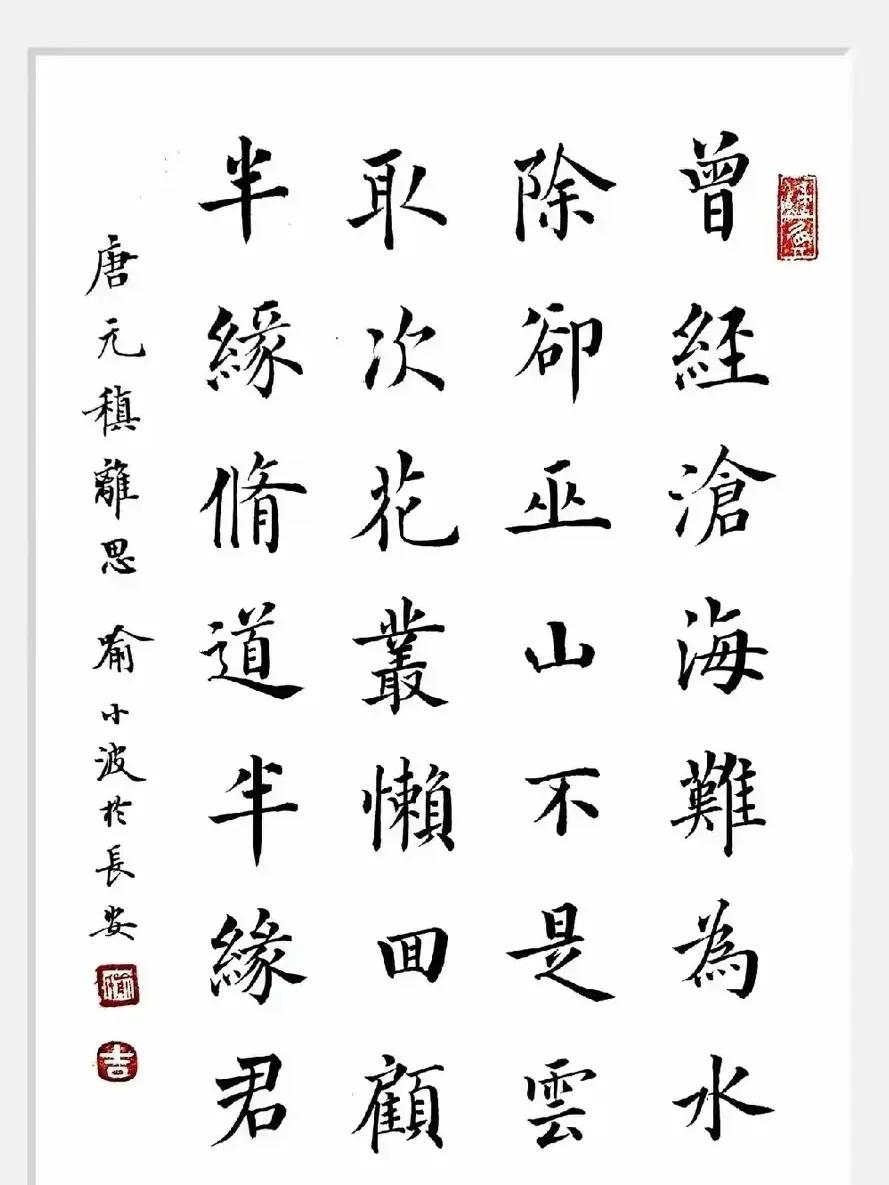 曾經滄海難為水
除卻巫山不是雲
取次花叢懶回顧
半緣脩道半緣君
唐元稹離思 喻小波於長安
喻
吉